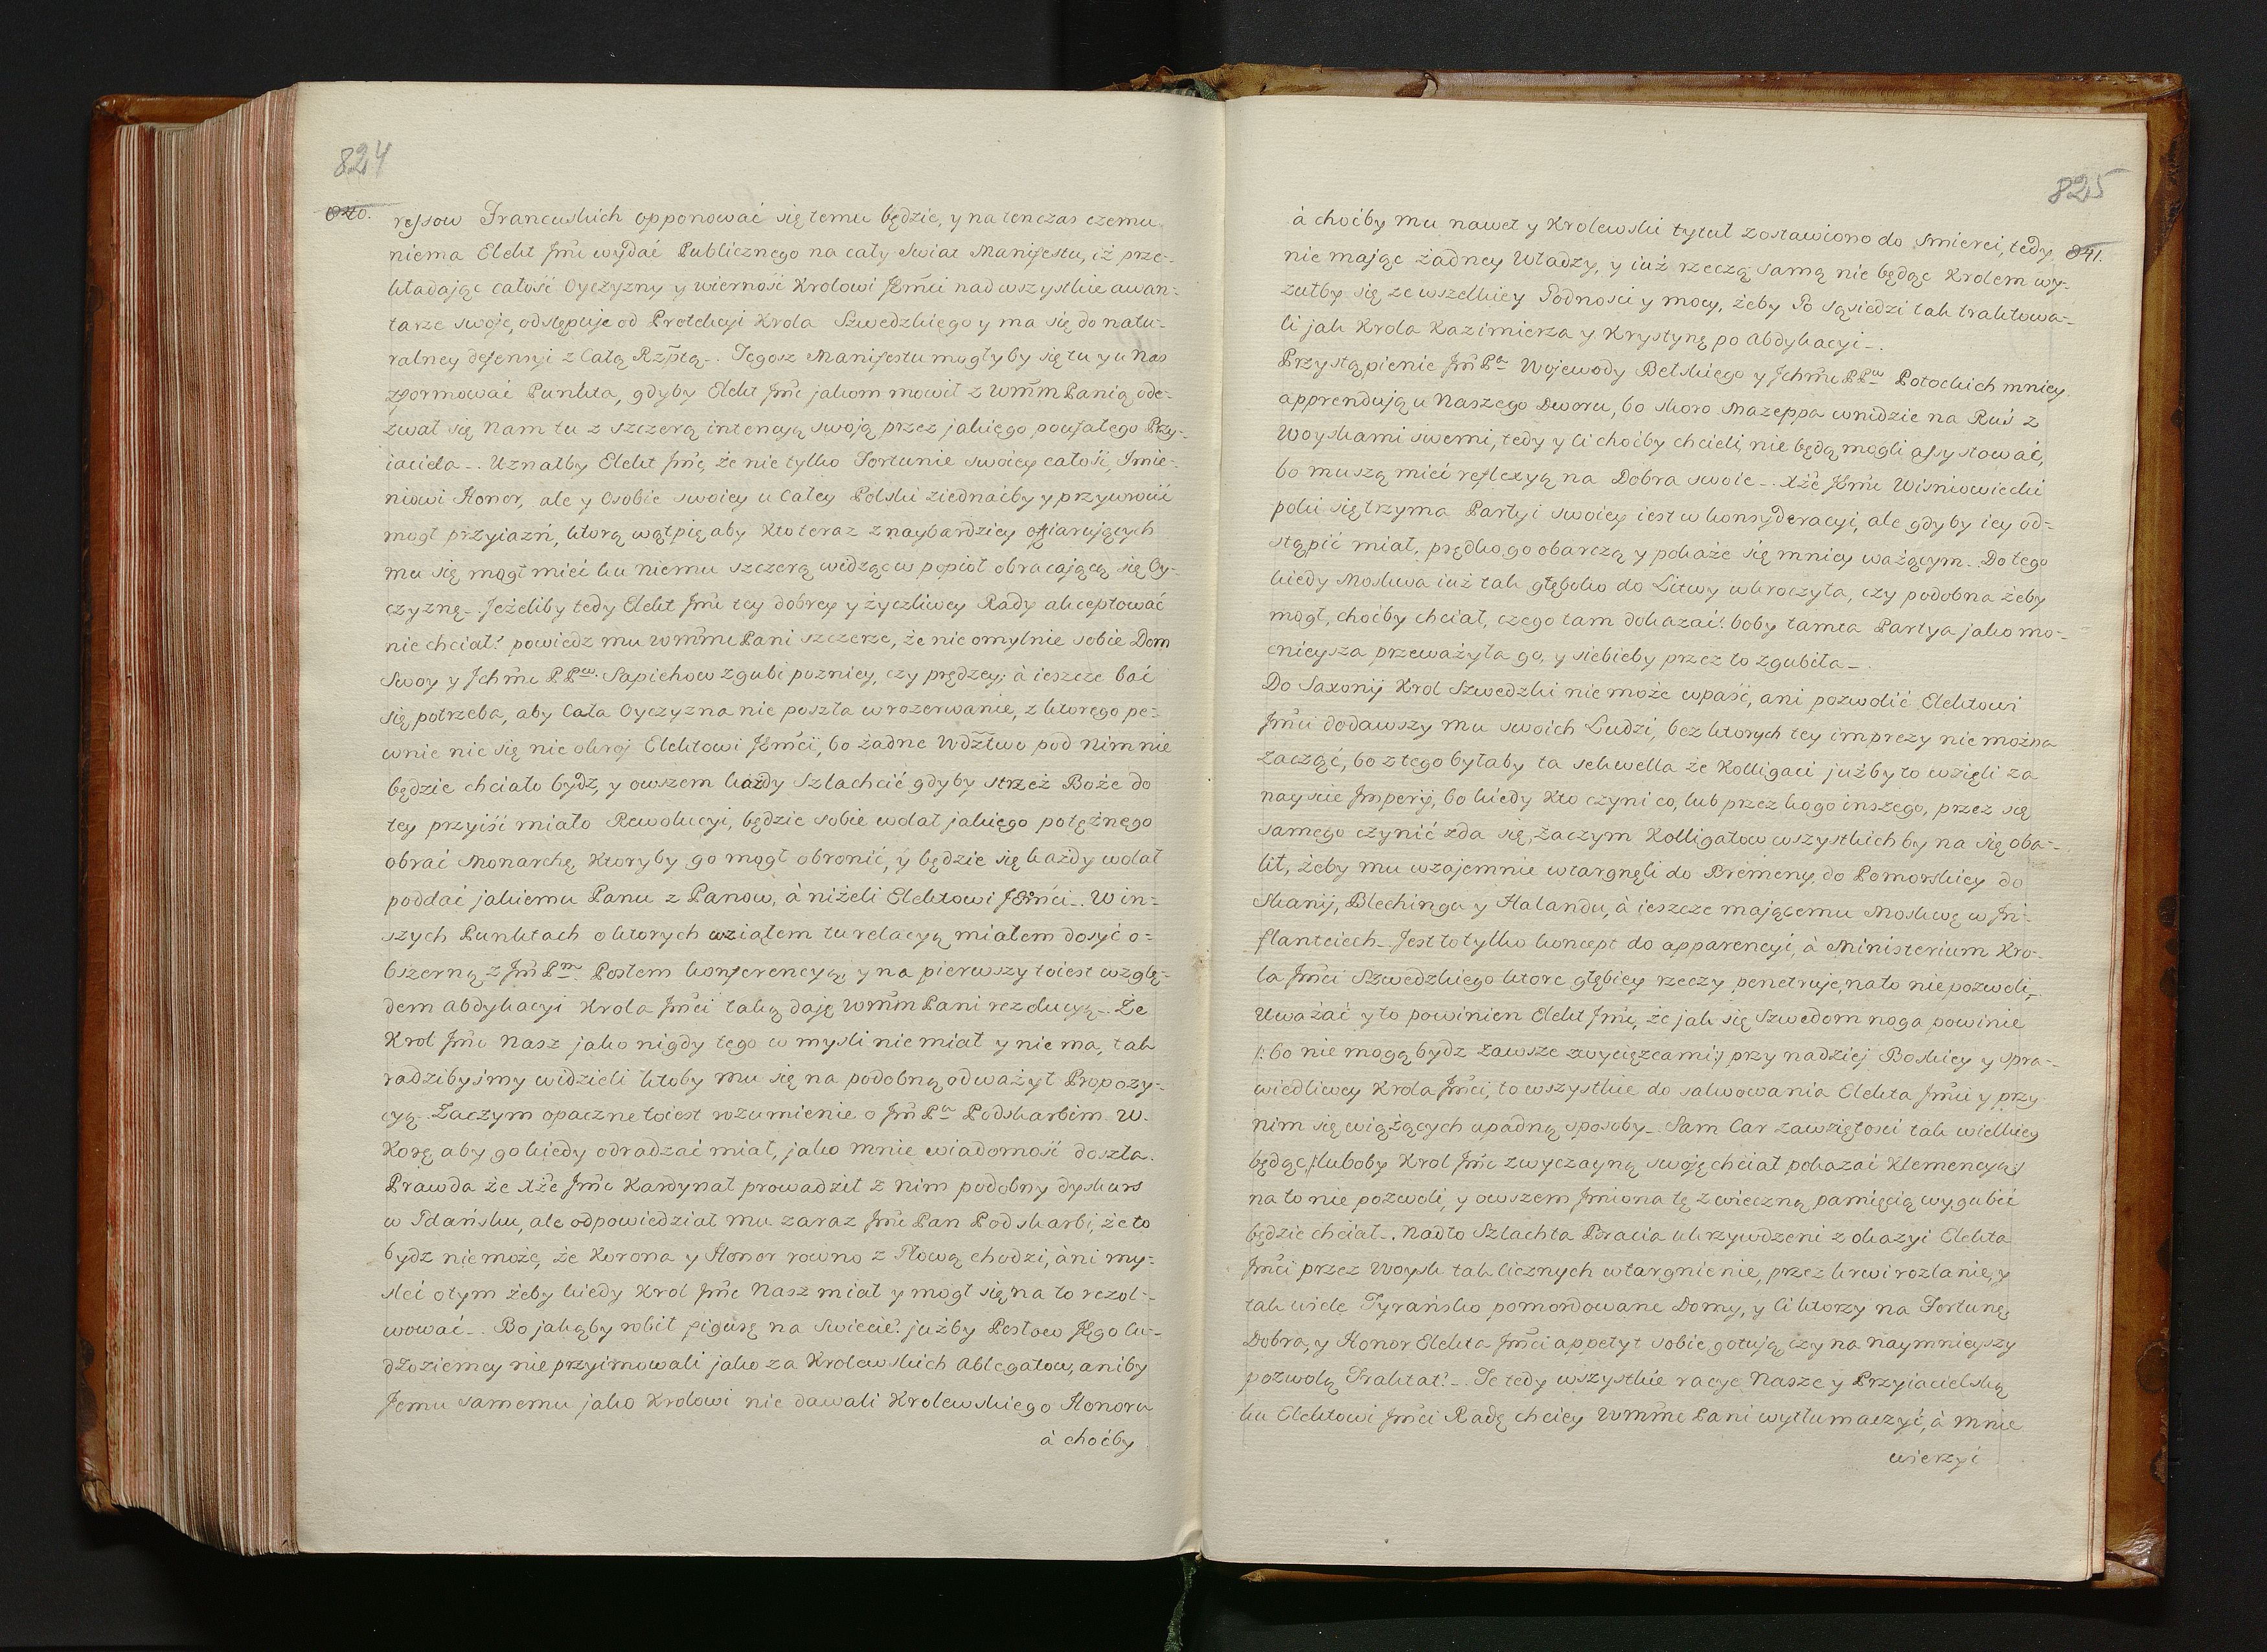 824
840.
ressow Francuskich opponować się temu będzie, y na tenczas czemu
niema Elekt Jmć wydać Publicznego na cały Swiat Manifestu, iż prze-
kładając całość Oyczyzny y wierność Krolowi JEmći nad wszystkie awan-
tarze swoje, odstępuje od Protekcyi Krola Szwedzkiego y ma się do natu-
ralney defensyi z Całą Rzptą_. Tegosz Manifestu mogłyby się tu y u Nas
zformować Punkta, gdyby Elekt Jmć jakom mowił z WmMPanią ode-
zwał się Nam tu z szczerą intencyą swoją przez jakiego poufałego Przy-
iaciela_. Uznałby Elekt Jmć, że nie tylko Fortunie swoiey całość, Imie-
niowi Honor, ale y Osobie swoiey u Całey Polski ziednaćby y przywrócić
mogł przyiazń, ktorą wątpię aby Kto teraz z naybardziey ofiarujących
mu się mogł mieć ku niemu szczerą widząc w popioł obracającą się Oy-
czyznę_. Jeżeliby tedy Elekt Jmć tey dobrey y życzliwey Rady akceptować
nie chciał? powiedz mu WmMć Pani szczerze, że nie omylnie sobie Dom
Swoy y Jchmć PPow. Sapiehow zgubi pozniey, czy prędzey; à ieszcze bać
się potrzeba, aby Cała Oyczyzna nie poszła w rozerwanie, z ktorego pe-
wnie nic się nie okroj Elektowi JEmći, bo żadne Wdztwo pod Nim nie
będzie chciało bydz, y owszem każdy Szlachcić gdyby strzeż Boże do
tey przyiść miało Rewolucyi, będzie sobie wolał jakiego potężnego
obrać Monarchę, Ktoryby go mogł obronić, y będzie się każdy wolał
poddać jakiemu Panu z Panow, à niżeli Elektowi JEmći_. W in-
szych Punktach o ktorych wziąłem tu relacyą miałem dosyć o-
bszerną z Jm Pm Posłem konferencyą, y na pierwszy to iest wzglę-
dem abdykacyi Krola Jmći taką daję WmMPani rezolucyą_. Że
Krol Jmć Nasz jako nigdy tego w myśli nie miał y nie ma, tak
radzibyśmy widzieli ktoby mu się na podobną odważył Propozy-
cyą_. Zaczym opaczne to iest rozumienie o Jm Pa Podskarbim W.
Korę, aby go kiedy odradzać miał, jako mnie wiadomość doszła.
Prawda że Xże Jmć Kardynał prowadził z nim podobny dyskurs
w Gdańsku, ale odpowiedział mu zaraz Jmć Pan Podskarbi, że to
bydz nie może, że Korona y Honor rowno z Głową chodzi, àni my-
sleć o tym żeby kiedy Krol Jmć Nasz miał y mogł się na to rezol-
wować_. Bo jakąby robił figurę na Swiecie? jużby Posłow Jego Cu-
dzoziemcy nie przyimowali jako za Krolewskich Ablegatow, aniby
Jemu samemu jako Krolowi nie dawali Krolewskiego Honoru
à choćby
825
841.
à choćby mu nawet y Krolewski tytuł zostawiono do Smierci, tedy
nie mając żadney Władzy, y iuż rzeczą samą nie będąc Krolem wy-
zułby się ze wszelkiey Godności y mocy, żeby Go sąsiedzi tak traktowa-
li jak Krola Kazimierza y Krystynę po Abdykacyi_.
Przystąpienie Jm Pa Wojewody Bełskiego y Jchmć PPow Potockich mniey
apprendują u Naszego Dworu, bo skoro Mazeppa wnidzie na Ruś z
Woyskami swemi, tedy y Ci choćby chcieli, nie będą mogli assystować,
bo muszą mieć reflexyą na Dobra swoie_. Xże Jmć Wisniowiecki
poki się trzyma Partyi swoiey iest w konsyderacyi, ale gdyby iey od-
stąpić miał, prędko go obarczą y pokaże się mniey ważącym_. Do tego
kiedy Moskwa iuż tak głęboko do Litwy wkroczyła, czy podobna żeby
mogł, choćby chciał, czego tam dokazać? boby tamta Partya jako mo-
cnieysza przeważyła go, y siebieby przez to zgubiła_.
Do Saxonij Krol Szwedzki nie może wpaść, ani pozwolić Elektowi
Jmći dodawszy mu swoich Ludzi, bez ktorych tey imprezy nie można
zacząć, bo z tego byłaby ta sekwella że Kolligaci jużby to wzięli za
nayście Jmperij, bo kiedy Kto czyni co, lub przez kogo inszego, przez się
samego czynić zda się, zaczym Kolligatow wszystkich by na się oba-
lił, żeby mu wzajemnie wtargnęli do Bremeny, do Pomorskiey do
Skanij, Blechingu y Halandu, à ieszcze mającemu Moskwę w Jn-
flantciech_. Jest to tylko koncept do apparencyi, à Ministerium Kro-
la Jmći Szwedzkiego ktore głębiey rzeczy penetruje, na to nie pozwoli_.
Uważać y to powinien Elekt Jmć, że jak się Szwedom noga powinie
/: bo nie mogą bydz zawsze zwyciężcami :/ przy nadziej Boskiey y spra-
wiedliwey Krola Jmći, to wszystkie do salwowania Elekta Jmći y przy
nim się wiążących upadną sposoby_. Sam Car zawziętości tak wielkiey
będąc, /: luboby Krol Jmć zwyczayną swoję chciał pokazać Klemencyą :/
na to nie pozwoli, y owszem Jmiona tę z wieczną pamięcią wygubić
będzie chciał_. Nadto Szlachta Bracia ukrzywdzeni z okazyi Elekta
Jmći przez Woysk tak licznych wtargnienie, przez krwi rozlanie, y
tak wiele Tyrańsko pomordowane Domy, y Ci ktorzy na Fortunę,
Dobra, y Honor Elekta Jmći appetyt sobie gotują, czy na naymnieyszy
pozwolą Traktat?_. Te tedy wszystkie racye Nasze y Przyiacielską
ku Elektowi Jmći Radę chciey WmMć Pani wytłumaczyć, à mnie
wierzyć